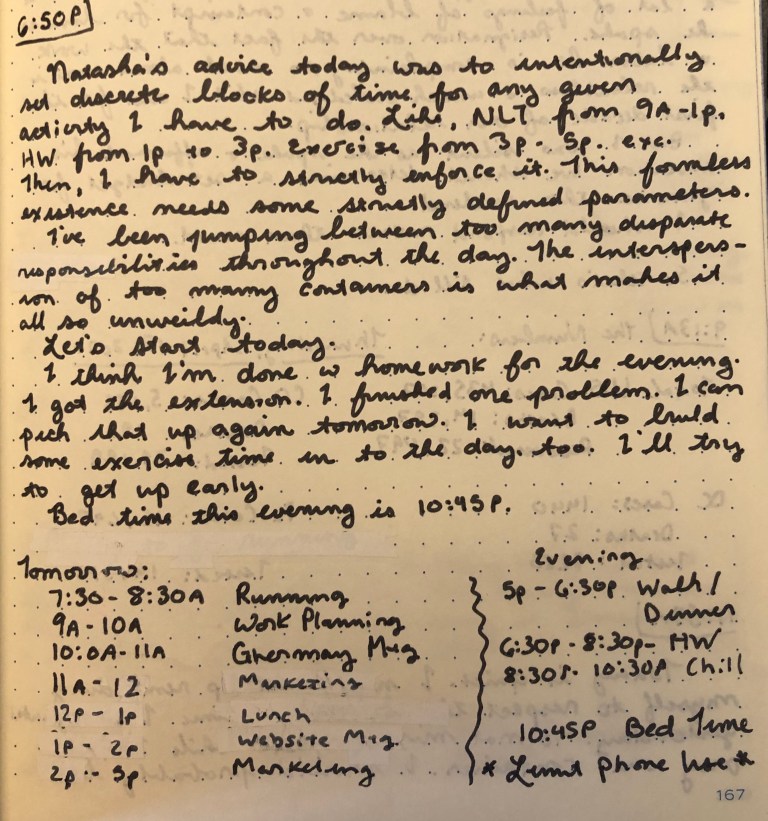 6:50P
Natasha's advice today was to intentionally
set discrete blocks of time for any given
activity I have to do. Like, NLT from 9A-1p.
HW from 1p to 3p. Exercise from 3p - 5p. exc.
Then, I have to strictly enforce it. This formless
existence needs some strictly defined parameters.
I've been jumping between too many disparate
responsibilities throughout the day. The interspers-
ion of too many containers is what makes it
all so unweildy.
Let's start today.
I think I'm done w homework for the evening.
I got the extension. I finished one problem. I can
pick that up again tomorrow. I want to build
some exercise time in to the day, too. I'll try
to get up early.
Bed time this evening is 10:45P.
Tomorrow:
7:30 - 8:30A Running
9A - 10A Work Planning
10:0A - 11A Ghermay Mtg
11A - 12 Marketing
12p - 1p Lunch
1p - 2p Website Mtg
2p - 5p Marketing
Evening
5p - 6:30p Walk /
Dinner
6:30p - 8:30p - HW
8:30P - 10:30P Chill
10:45P Bed Time
* Limit Phone Use *
167